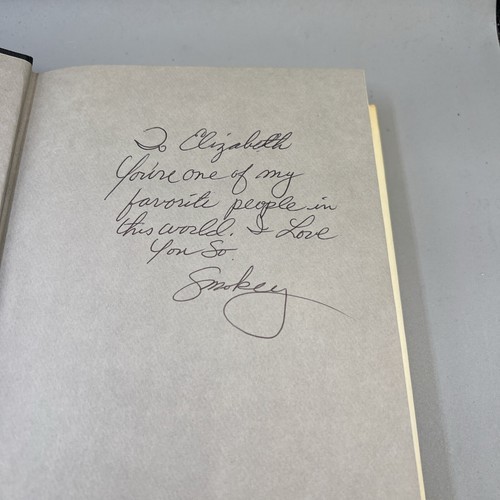 To Elizabeth
You're one of my
favorite people in
this world. I Love
You So.
Smokey